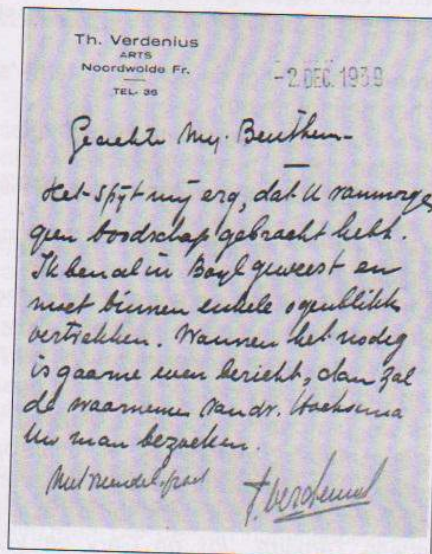 Th. Verdenius
ARTS
Noordwolde Fr.
TEL. 36
-2. DEC. 1939
Geachte Mej. Benthem.
Het spijt mij erg, dat U vanmorgen
geen boodschap gebracht hebt.
Ik ben al in Boyl geweest en
moet binnen enkele ogenblikken
vertrekken. Wanneer het nodig
is gaarne even bericht, dan zal
de waarnemer van dr. Hoeksema
Uw man bezoeken.
Met vriendel. groet
T. Verdenius